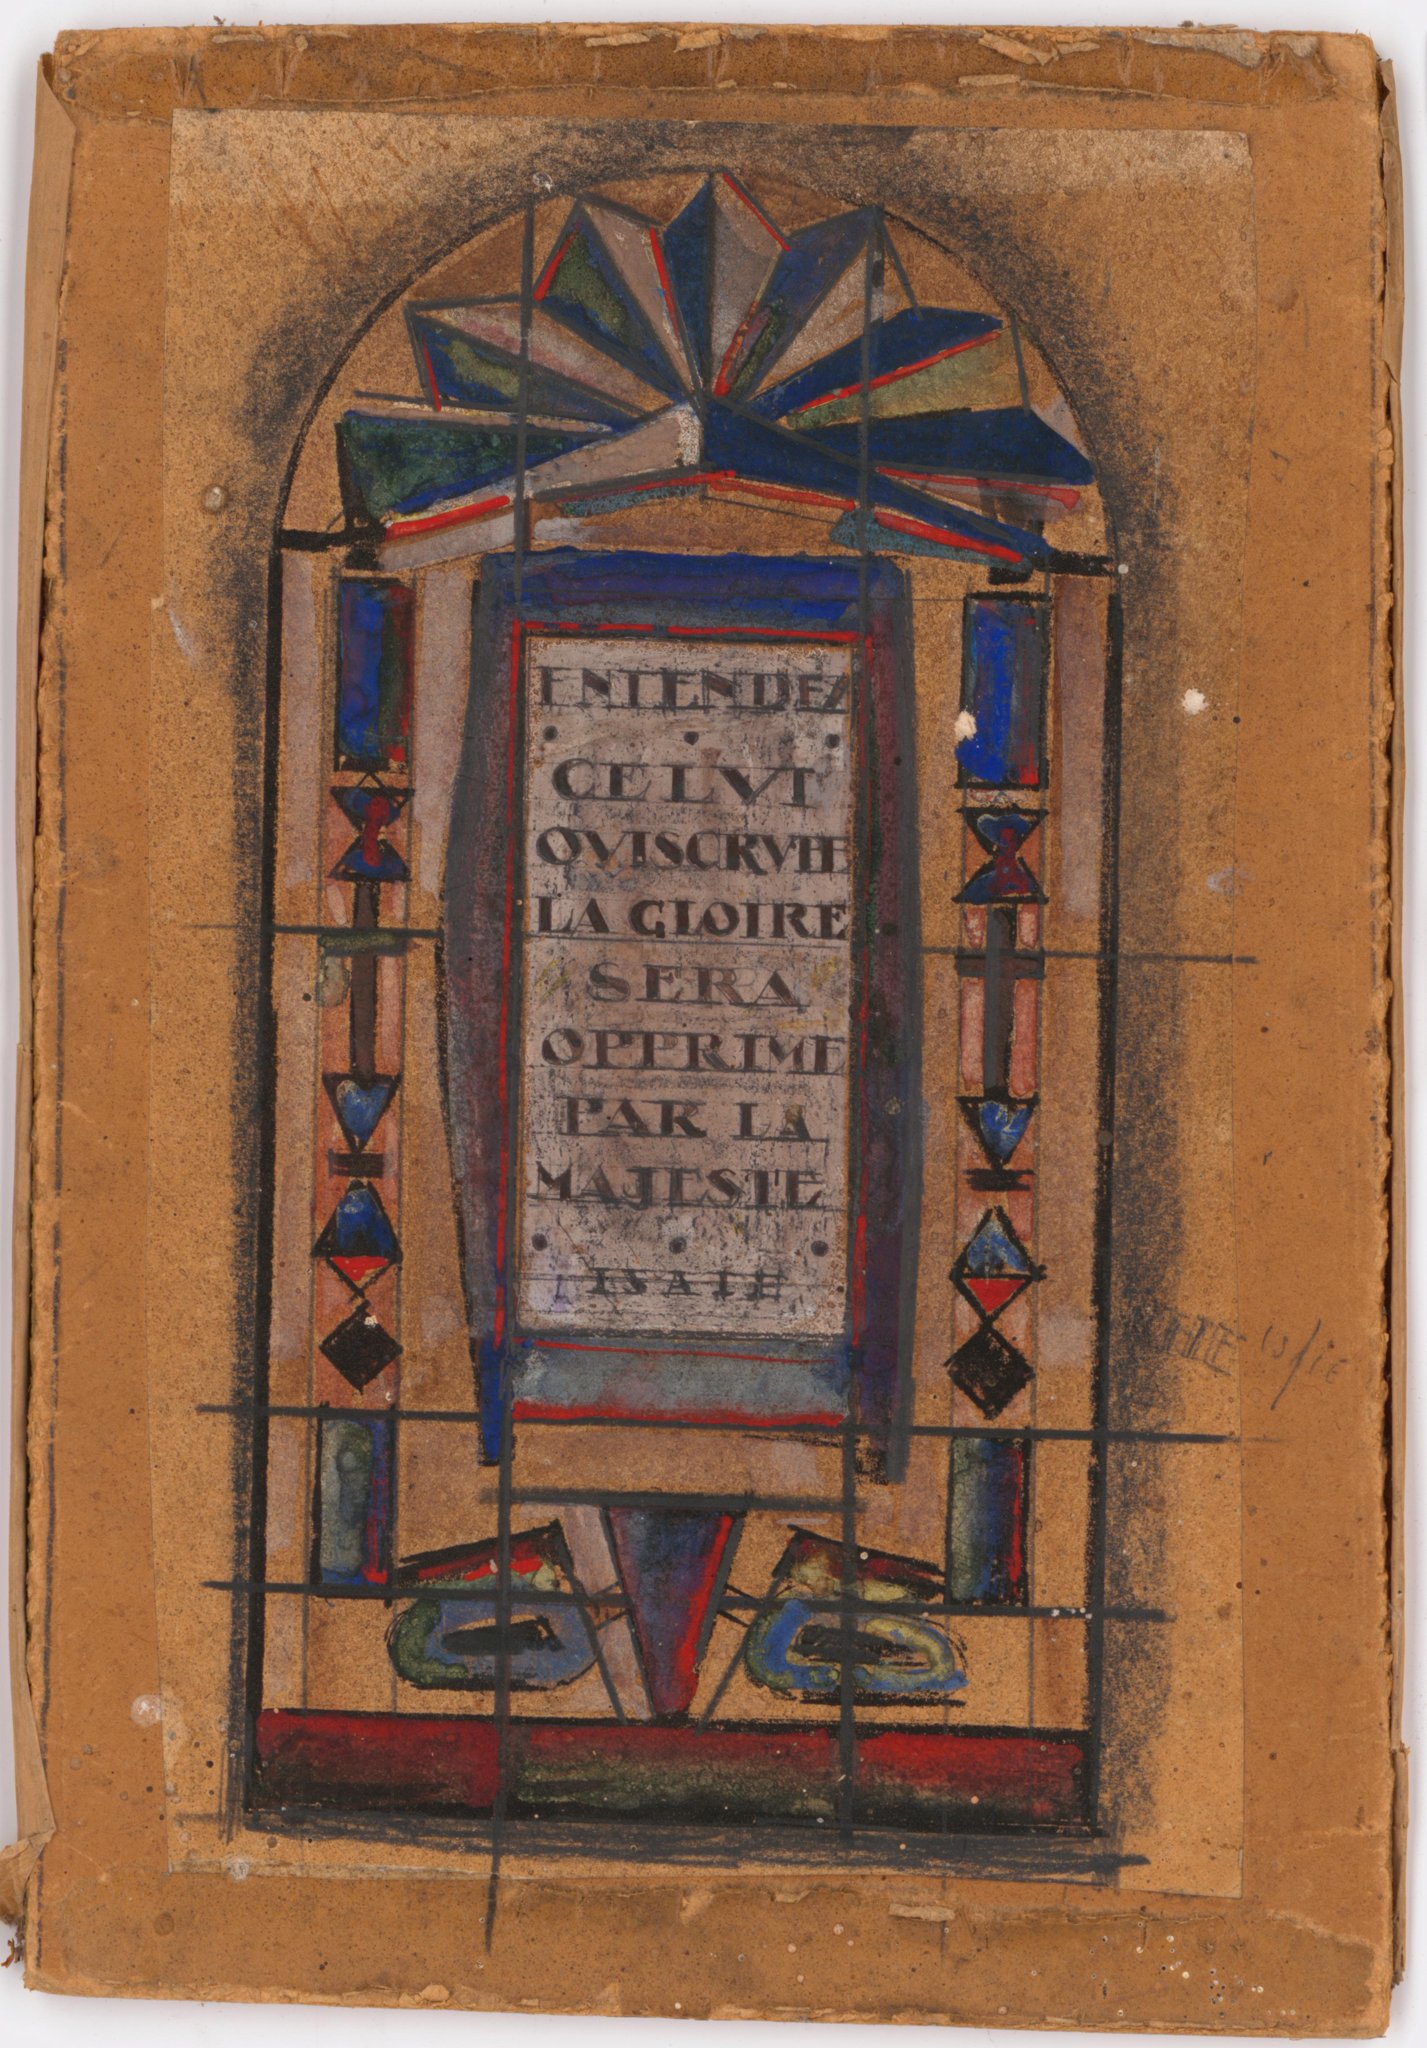 ENTENDEZ
CELVI
QVISCRVTE
LA GLOIRE
SERA
OPPRIME
PAR LA
MAJESTE
ISAIE